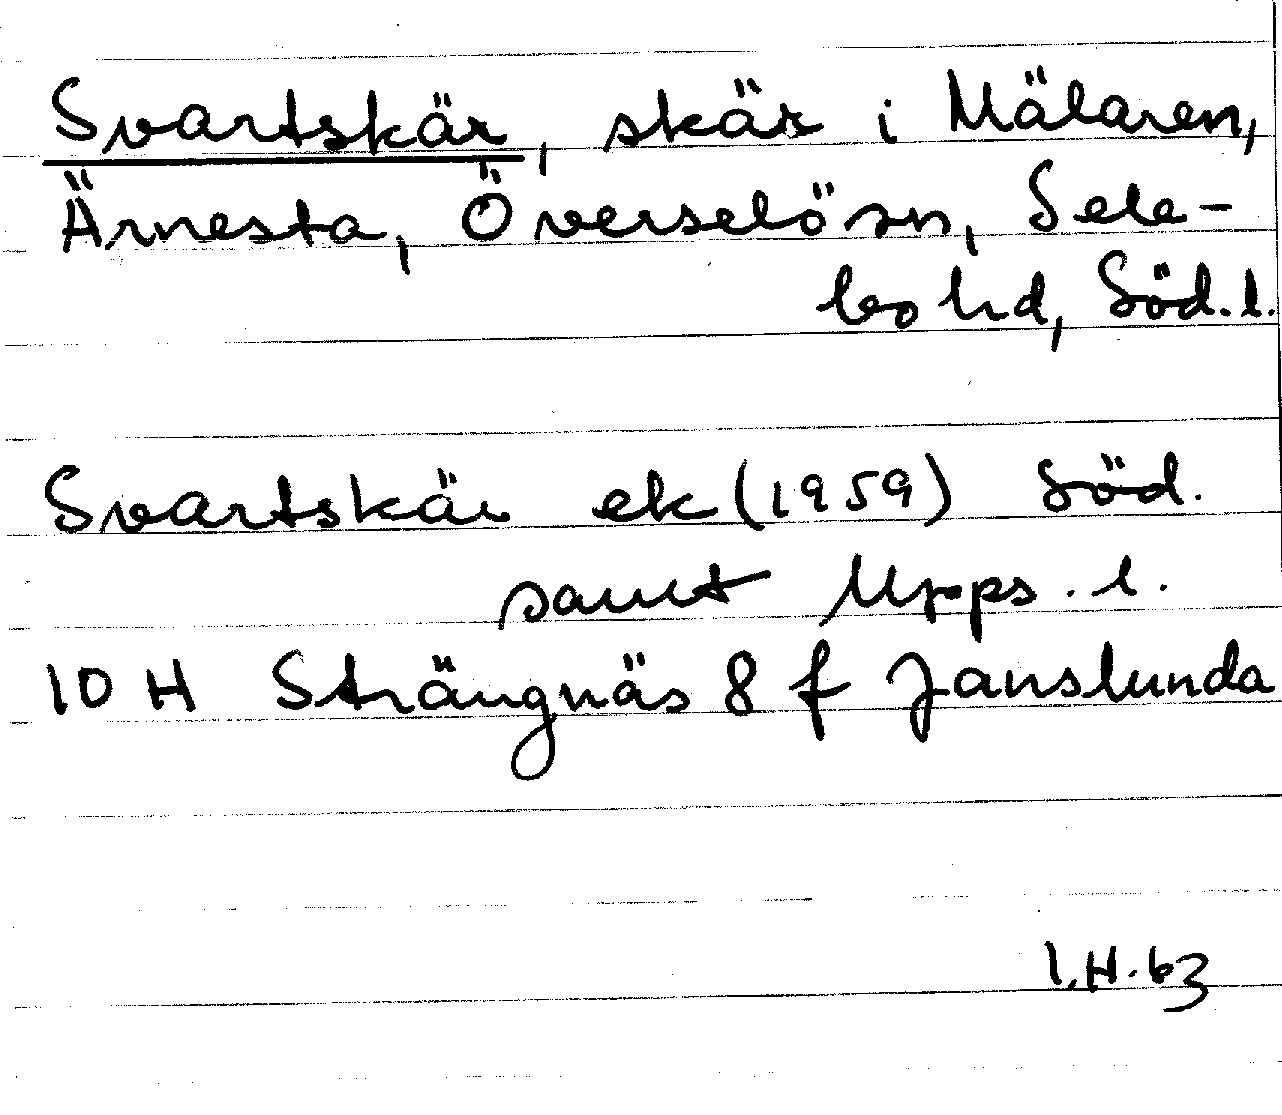 Svartskär, skär i Mälaren,
Ärnesta, Överselö sn, Sele-
bo hd, Söd. l.
Svartskär ek (1959) Söd.
samt Upps. l.
10 H Strängnäs 8 f Janslunda
I.H. 63